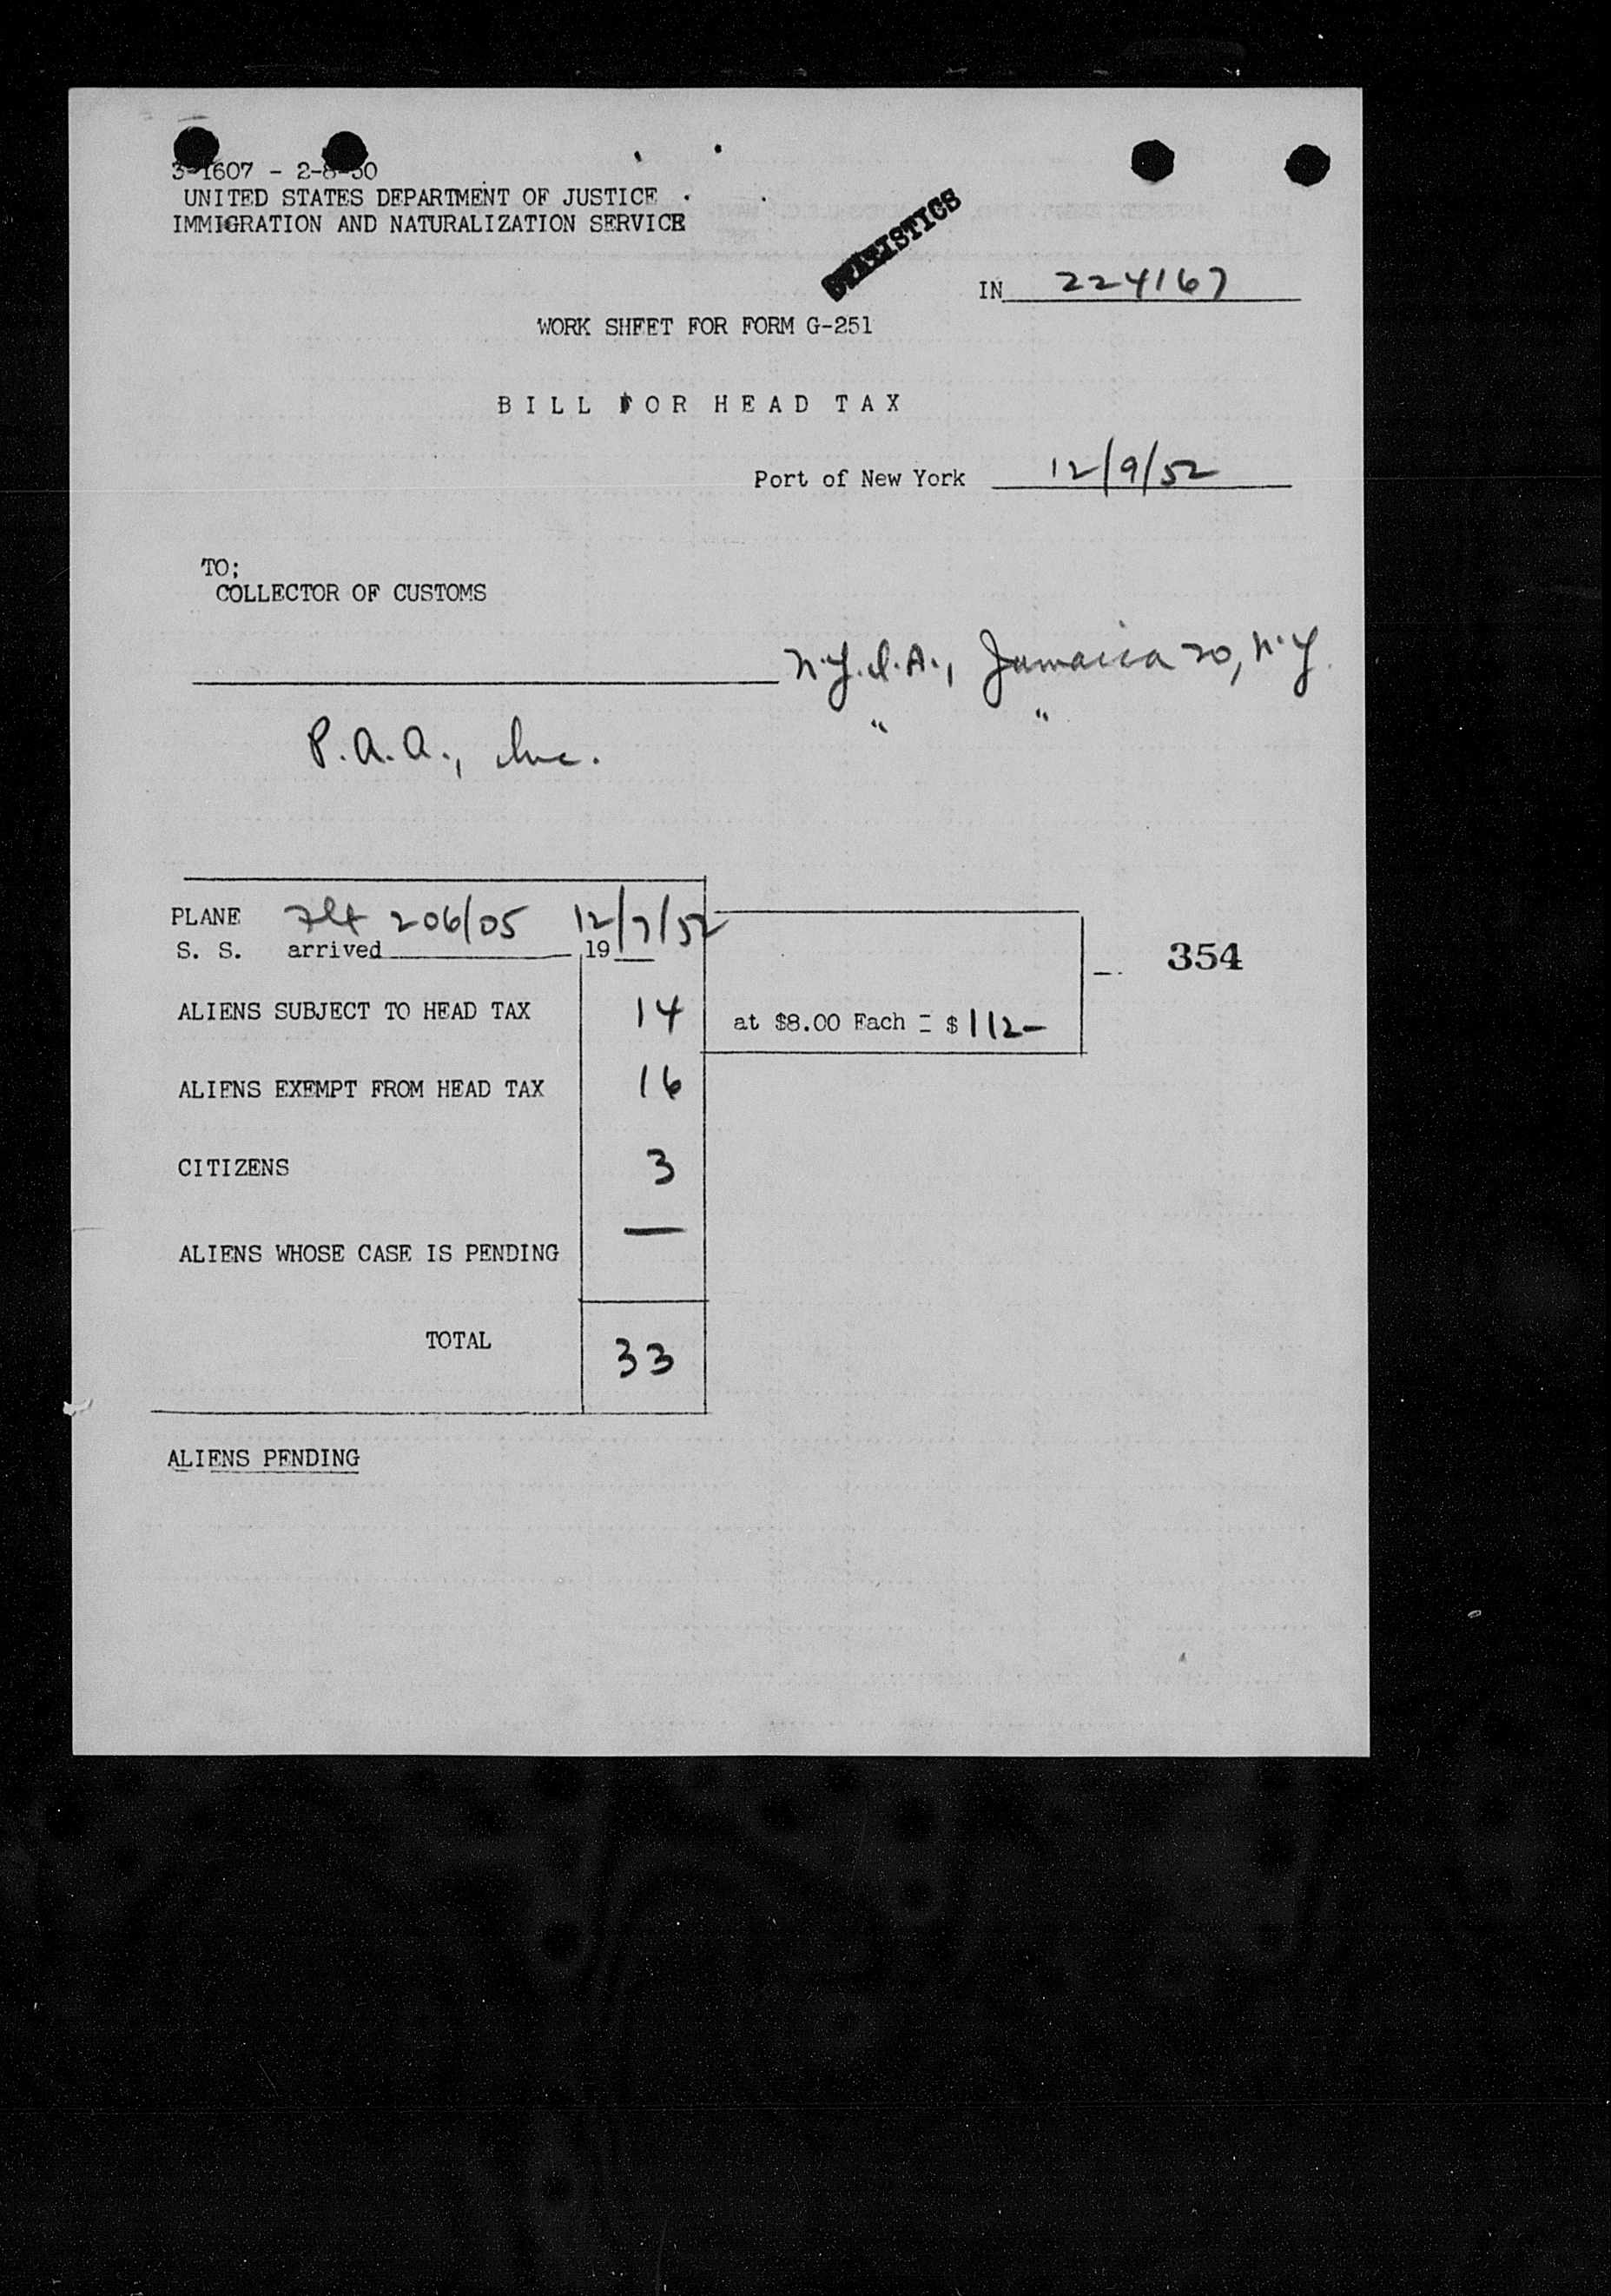 3-1607 - 2-8-50
UNITED STATES DEPARTMENT OF JUSTICE
IMMIGRATION AND NATURALIZATION SERVICE
STATISTICS
IN 224167
WORK SHEET FOR FORM G-251
BILL FOR HEAD TAX
Port of New York 12/9/52
TO:
COLLECTOR OF CUSTOMS
N.Y.I.A., Jamaica 20, N.Y.
P.A.A., Inc. " "
PLANE Flt 206/05 12/7/52
S. S. arrived 19
354
ALIENS SUBJECT TO HEAD TAX 14 at $8.00 Each = $112-
ALIENS EXEMPT FROM HEAD TAX 16
CITIZENS 3
ALIENS WHOSE CASE IS PENDING —
TOTAL 33
ALIENS PENDING